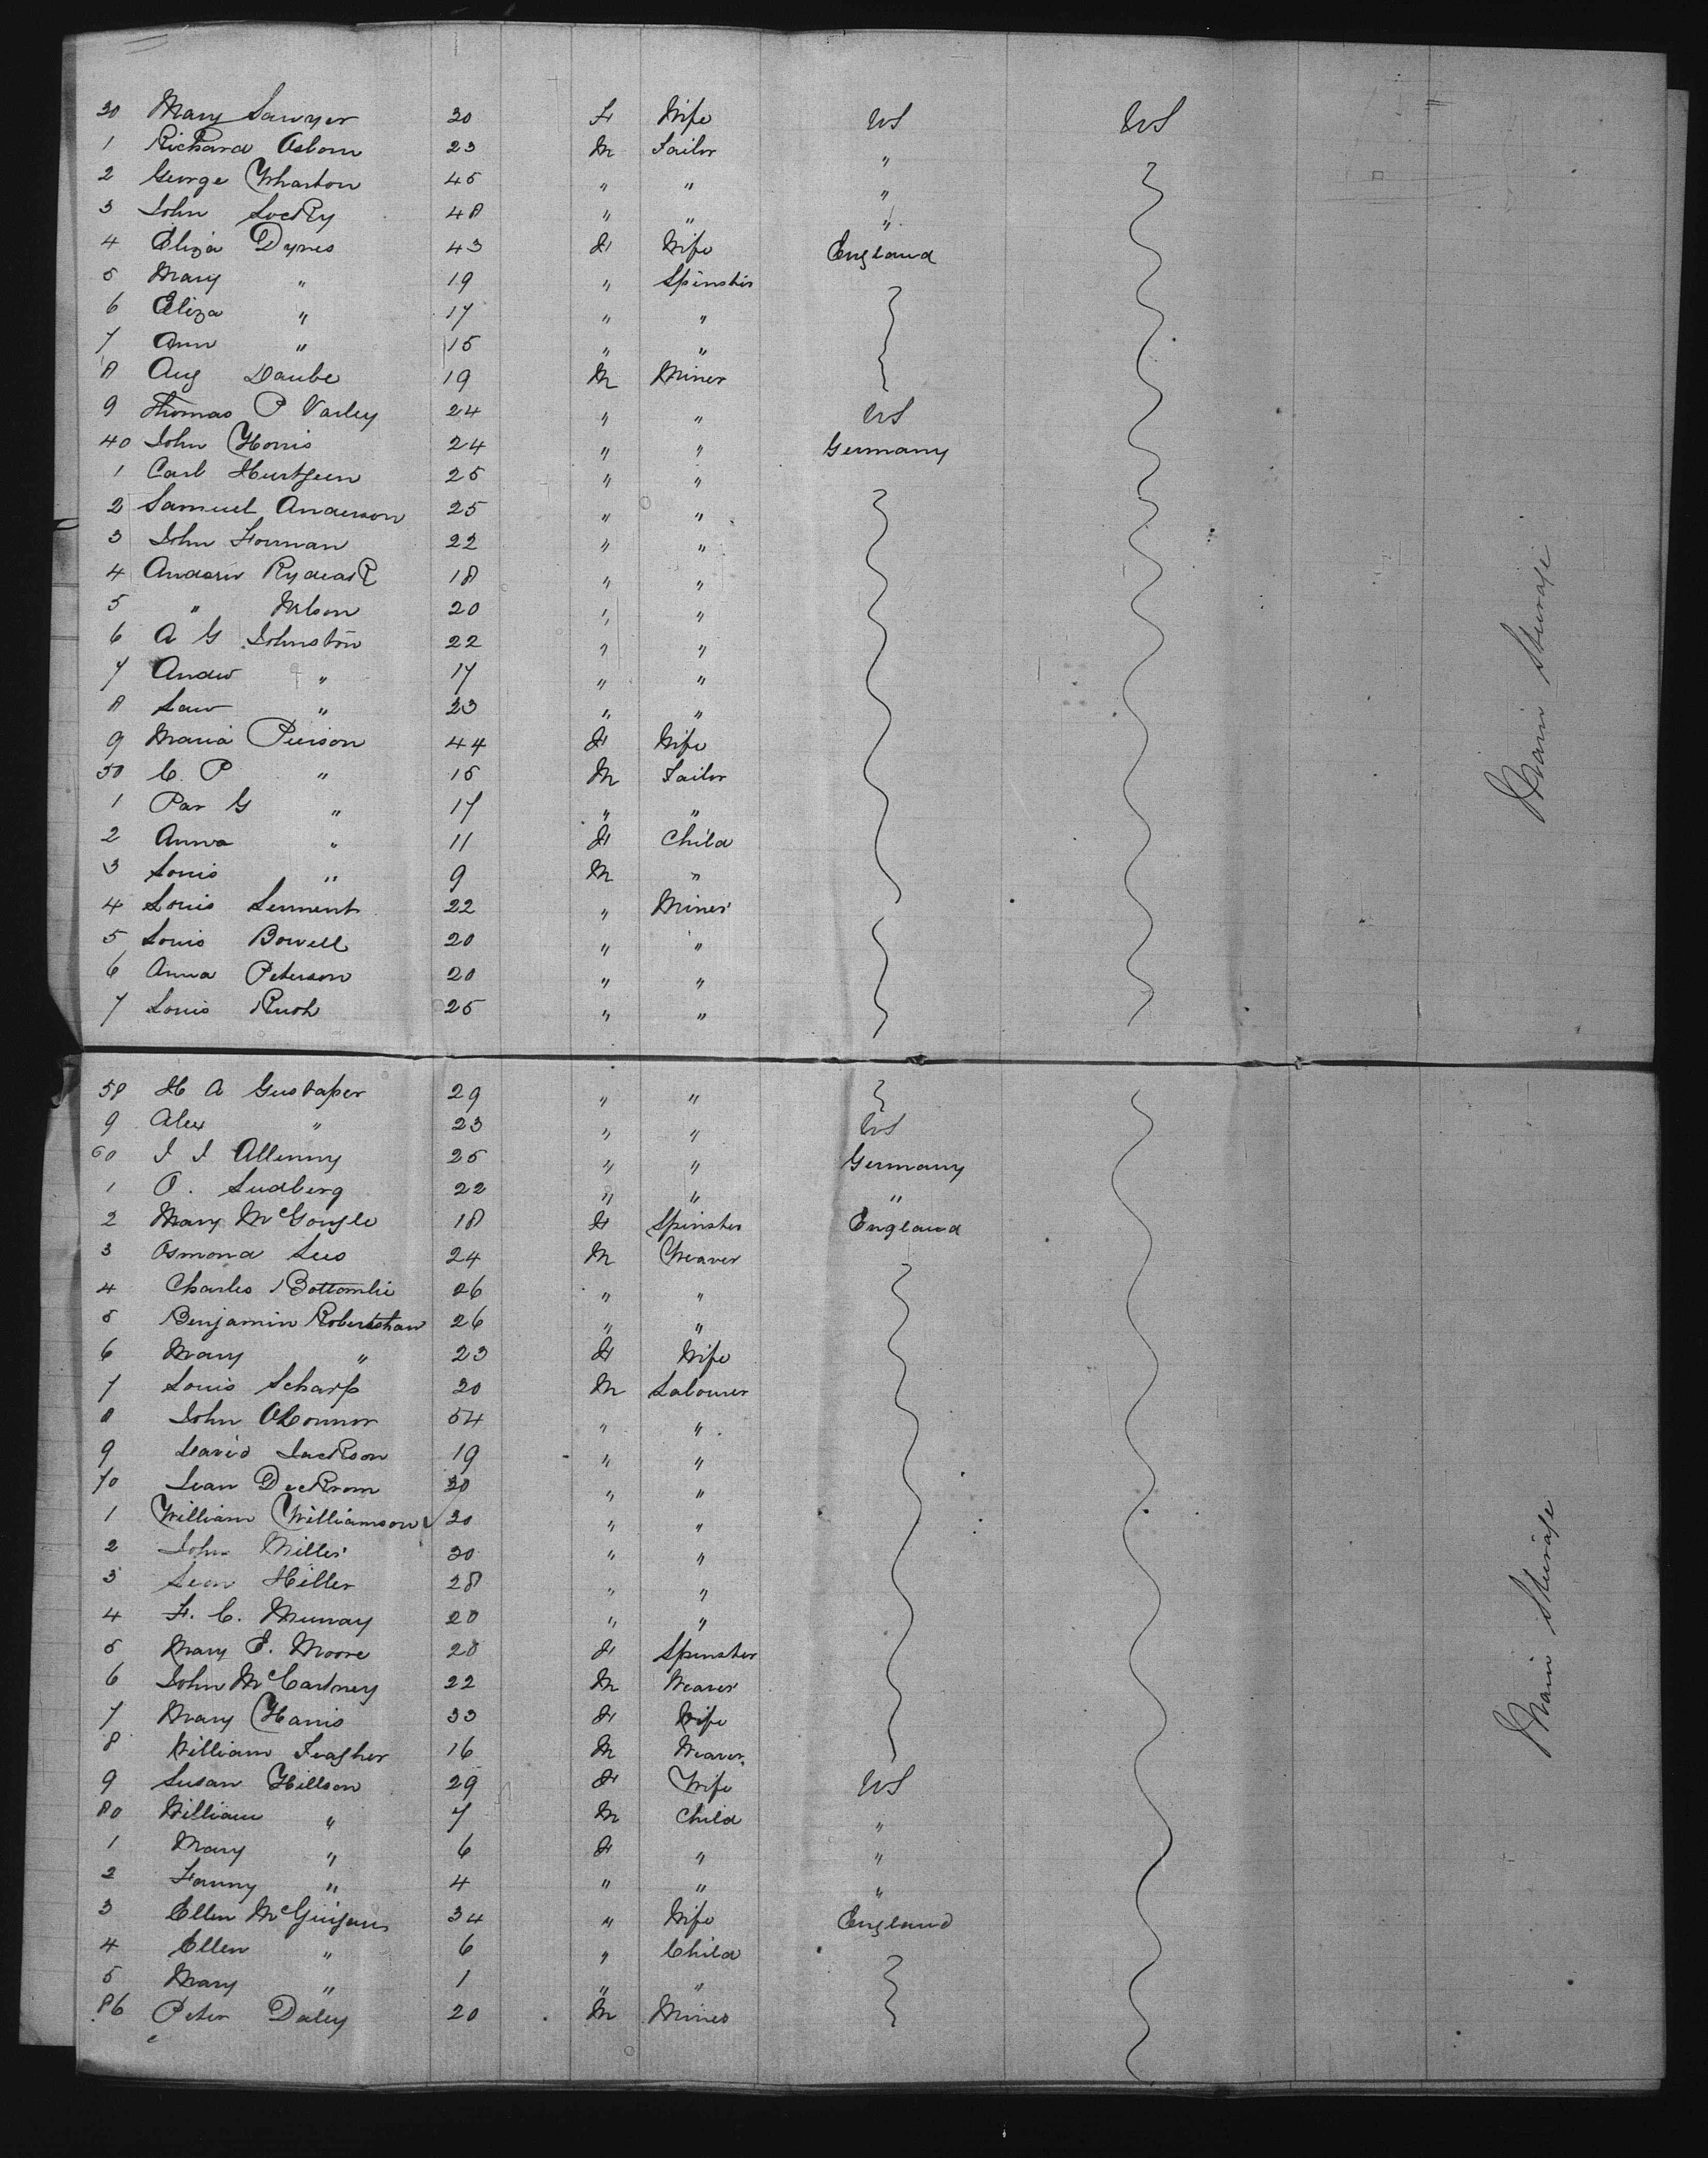 30 Mary Sawyer 30 F Wife US US
1 Richard Osborn 23 M Tailor "
2 George Wharton 45 " " "
3 John Lockly 48 " " "
4 Eliza Dynes 43 F Wife England
5 Mary " 19 " Spinster
6 Eliza " 17 " "
7 Ann " 15 " "
8 Aug Daube 19 M Miner
9 Thomas P Varley 24 " " US
40 John Horris 24 " " Germany
1 Carl Hurtgeen 25 " "
2 Samuel Anderson 25 " "
3 John Forman 22 " "
4 Andrew 18 " "
5 " Nelson 20 " "
6 A G Johnston 22 " "
7 Andw " 17 " "
8 Law " 23 " "
9 Maria Pierson 44 F Wife
50 C. P " 15 M Tailor
1 Par G " 17 " "
2 Anna " 11 F Child
3 Louis " 9 M "
4 Louis 22 " Miner
5 Louis Bowell 20 " "
6 Anna Peterson 20 " "
7 Louis Rush 25 " "
Main Steerage
58 H A Gustafser 29 " "
9 Alex " 23 " " US
60 J J Allenny 25 " " Germany
1 O. Sudberg 22 " " "
2 Mary McGongle 18 F Spinster England
3 Osmond Lees 24 M Weaver
4 Charles Bottomlie 26 " "
5 Benjamin Robertshaw 26 " "
6 Mary " 23 F Wife
7 Louis Scharp 20 M Labourer
8 John OConnor 54 " "
9 David Jackson 19 " "
70 Dickrom 30 " "
1 William Williamson 20 " "
2 John Miller 30 " "
3 Leon Hiller 28 " "
4 F. C. Murray 20 " "
5 Mary E. Moore 20 F Spinster
6 John McCartney 22 M Weaver
7 Mary Harris 33 F Wife
8 William Feagher 16 M Weaver
9 Susan Hillson 29 F Wife US
80 William " 7 M Child "
1 Mary " 6 F " "
2 Fanny " 4 " " "
3 Ellen McGuigans 34 " Wife England
4 Ellen " 6 " Child
5 Mary " 1 " "
86 Peter Daley 20 M Miner
Main Steerage